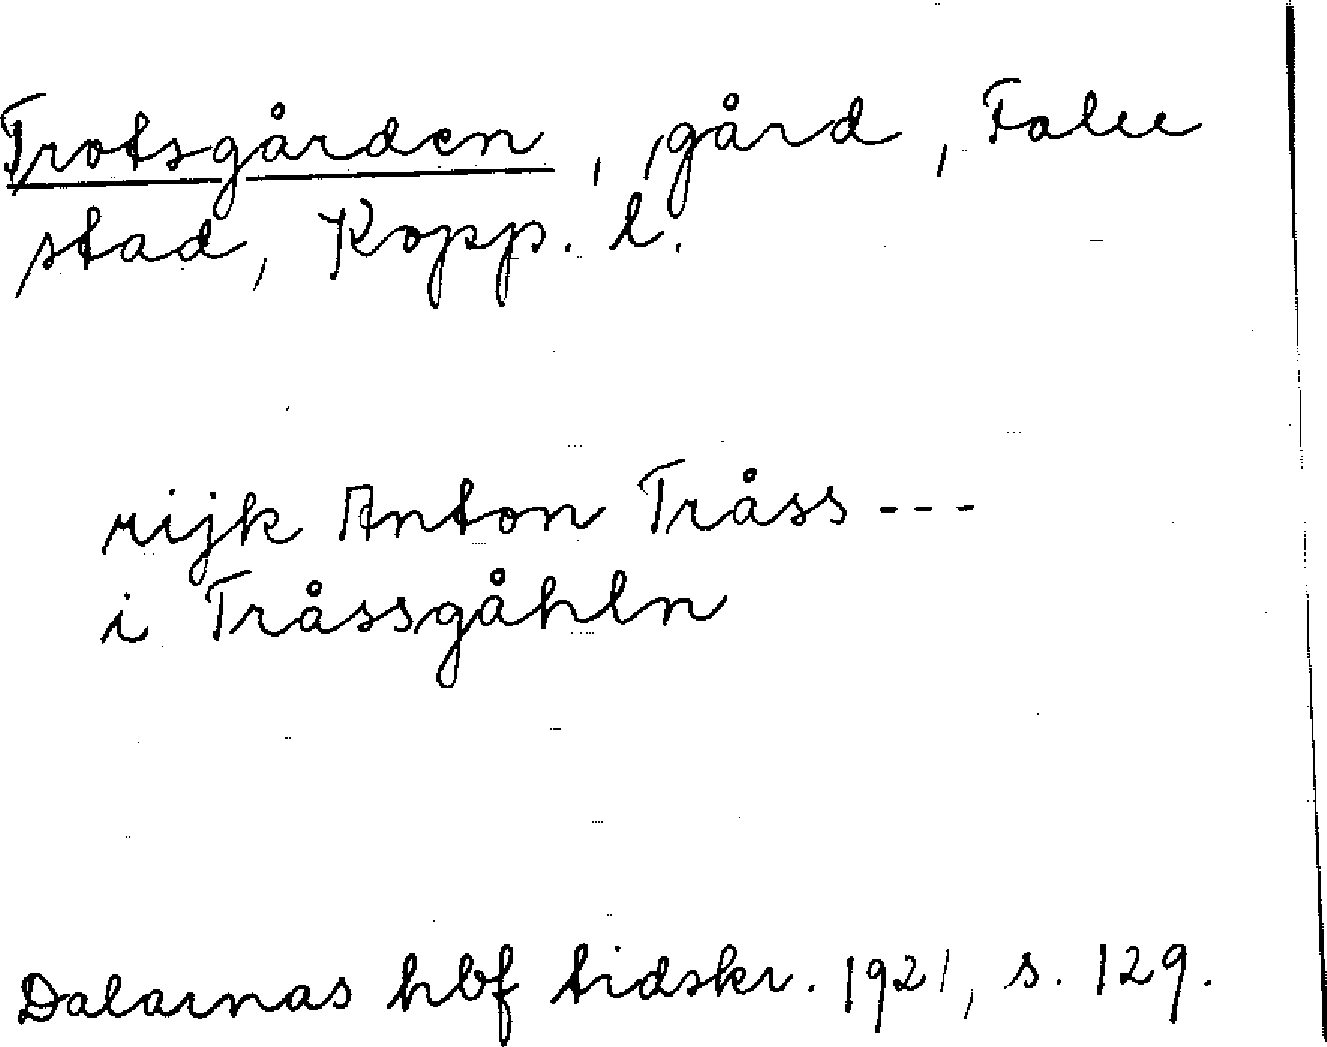 Trotsgården, gård, Falu
stad, Kopp. l.
rijk Anton Tråss ---
i Tråssgåhln
Dalarnas hbf tidskr. 1921, s. 129.